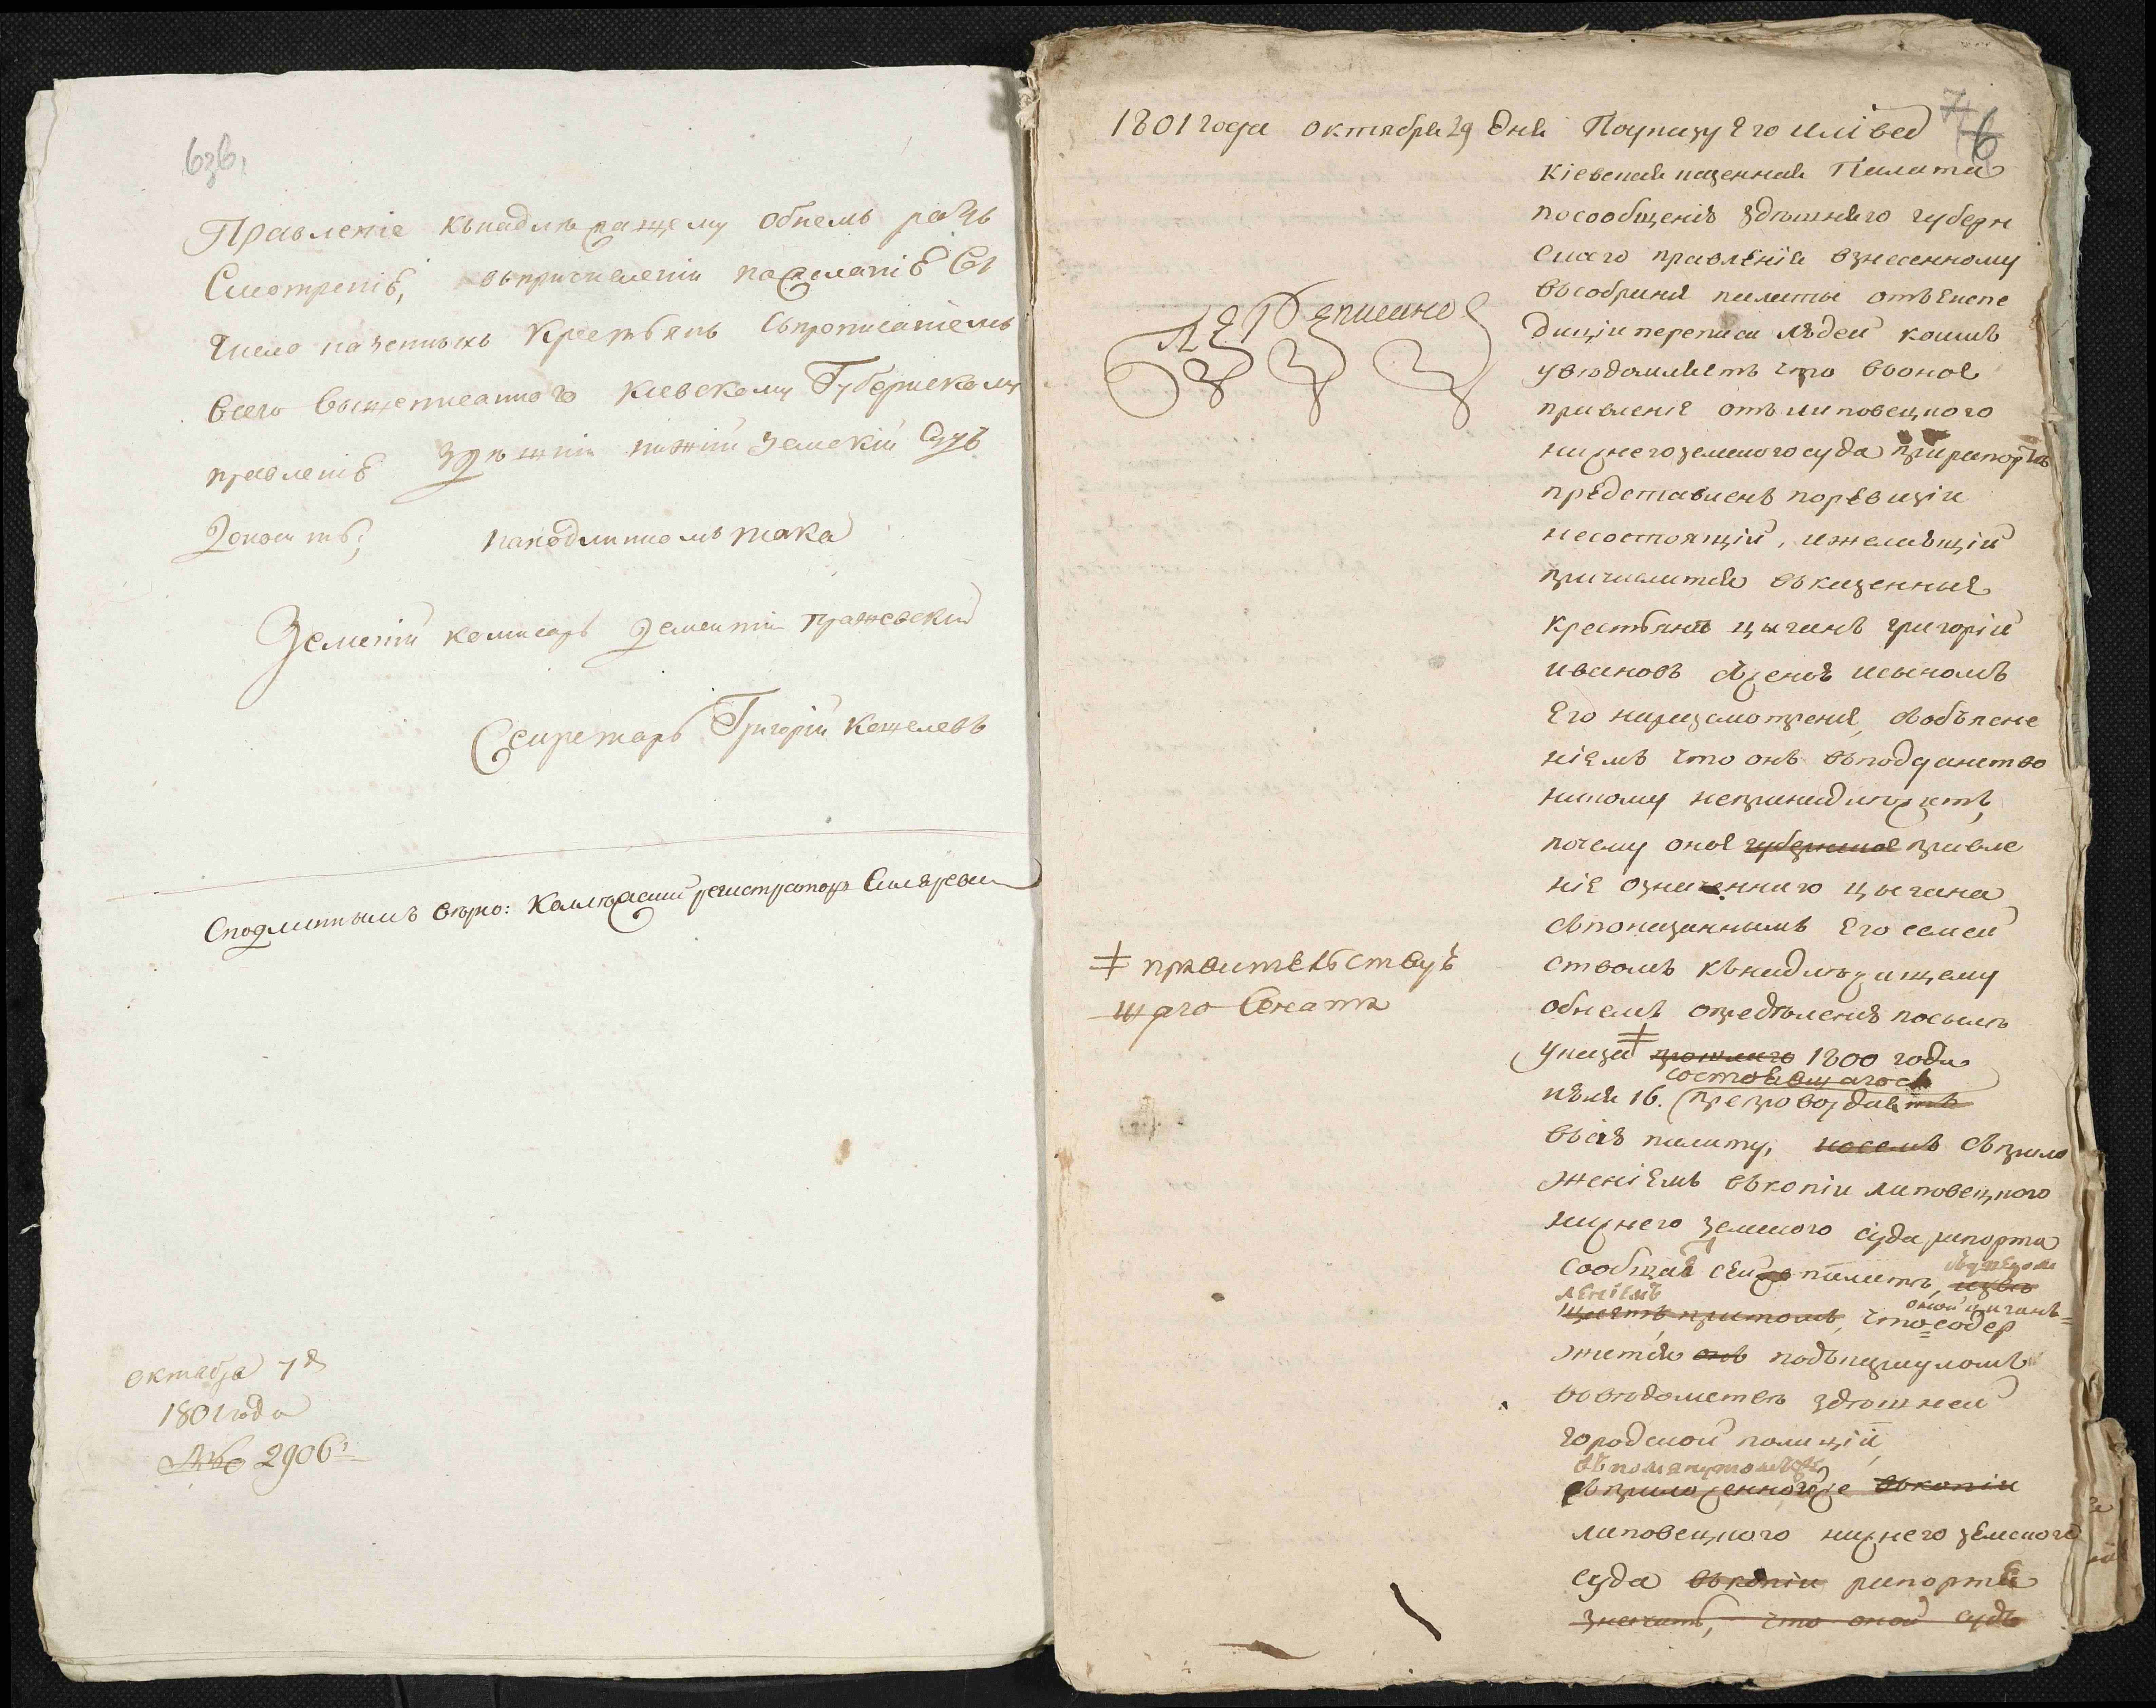 Правленіе кънадлежащему обнемъ разъ
Смотренію, въпричисленіи пожеланію Ево
Число казенныхъ Крестьянъ Спрописаніемъ
всего вышеписанного Киевскому Губернскому
правленію здѣшній нижній Земскій Судъ
Доноситъ; наподлинномъ тако
Земскій комисаръ Дементій
Секретарь Григорій Кошелевъ
Сподлиннымъ вѣрно: Коллежский регистраторъ
октября 7 д
1801 года
№ 2906
1801 года октября 29 дня Поуказу Его
6
Кіевская казенная Палата
посообщенію здѣшняго губерн
скаго правленія взнесенному
въсобраніе палаты отъ Экспе
диціи переписи людей коимъ
уведомляетъ что воное
правленіе отъ липовецкого
нижнего земского суда прирапортѣ
представленъ поревизіи
несостоящій, ижелающій
причислится въказенныя
крестьяне цыганъ григорій
ивановъ сженою исыномъ
Его наразсмотреніе, сობъясне
ніемъ что онъ въподданство
никому непринадлежитъ,
почему оное губернское правле
ніе означенного цыгана
спонаказаннымъ Его семей
ствомъ кънадлежащему
обнемъ определенію посилѣ
указа прошлаго 1800 года
состоявшагося
июля 16. препровождая
всію палату, съприло
женіемъ въкопіи липовецкого
нижнего земского суда рапорта
сообщая сей палатѣ,
суведом
леніемъ
оной цыганъ
притомъ, что содер
жится онъ подъ карауломъ
въведомстве здѣшней
городской полиціи
въпомянутомъ же
въприложенномже въкопіи
липовецкого нижнего земского
суда въкопіи рапорте
значитъ, что оной судъ
правительствую
щаго Сената